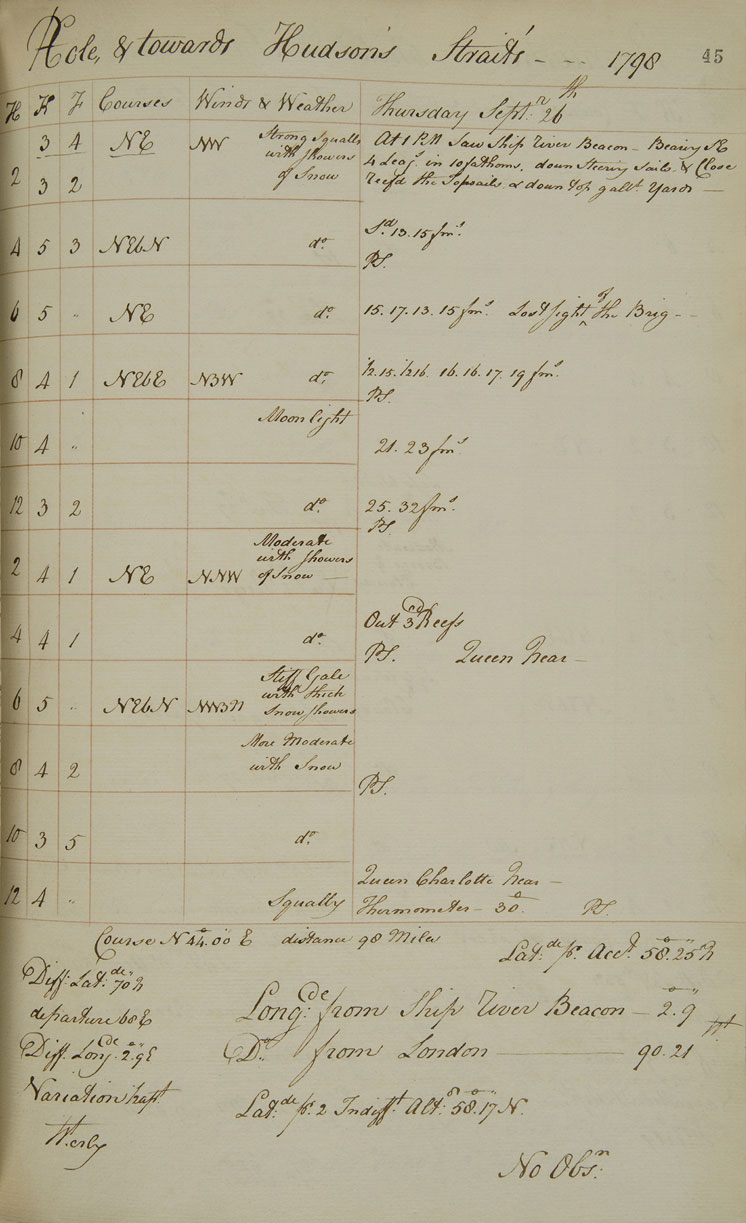 Hole, & towards Hudson's Straits - - - 1798 45
H K F Courses Winds & Weather Thursday Sept.r 26th
3 4 NE NW Strong Squalls
with Showers
of Snow
2 3 2
At 1 PM Saw Ship River Beacon - Bearing SE
4 Leags. in 10 fathoms. down Steering Sails & Close
reef'd the Topsails & down top gallt. Yards -
4 5 3 NEbN do. Sd. 13. 15 fms.
PS.
6 5 " NE do. 15. 17. 13. 15 fms. Lost sight of the Brig - -
8 4 1 NEbE NbW do. ½. 15. ½ 16. 16. 16. 17. 19 fms.
PS.
10 4 " Moon light 21. 23 fms.
12 3 2 do. 25. 32 fms.
PS.
2 4 1 NE NNW Moderate
with Showers
of Snow -
4 4 1 do. Out 3d Reefs
PS. Queen Near -
6 5 " NEbN NWbN Stiff Gale
with thick
Snow Showers
8 4 2 More Moderate
with Snow
PS.
10 3 5 do.
12 4 " Squally Queen Charlotte Near -
Thermometer - 30°. PS.
Course N 44°.00" E distance 98 Miles Lat:de pr. Acct. 58°.25" N
Diff: Lat:de 70 N
departure 68 E Long:de from Ship River Beacon - 2°.9"
Diff: Long:de 2°.9" E Do. from London - 90.21 Wt
Variation
Wt.erly Lat:de pr. 2 Indifft. Alts: 58°.17" N.
No Obsn: